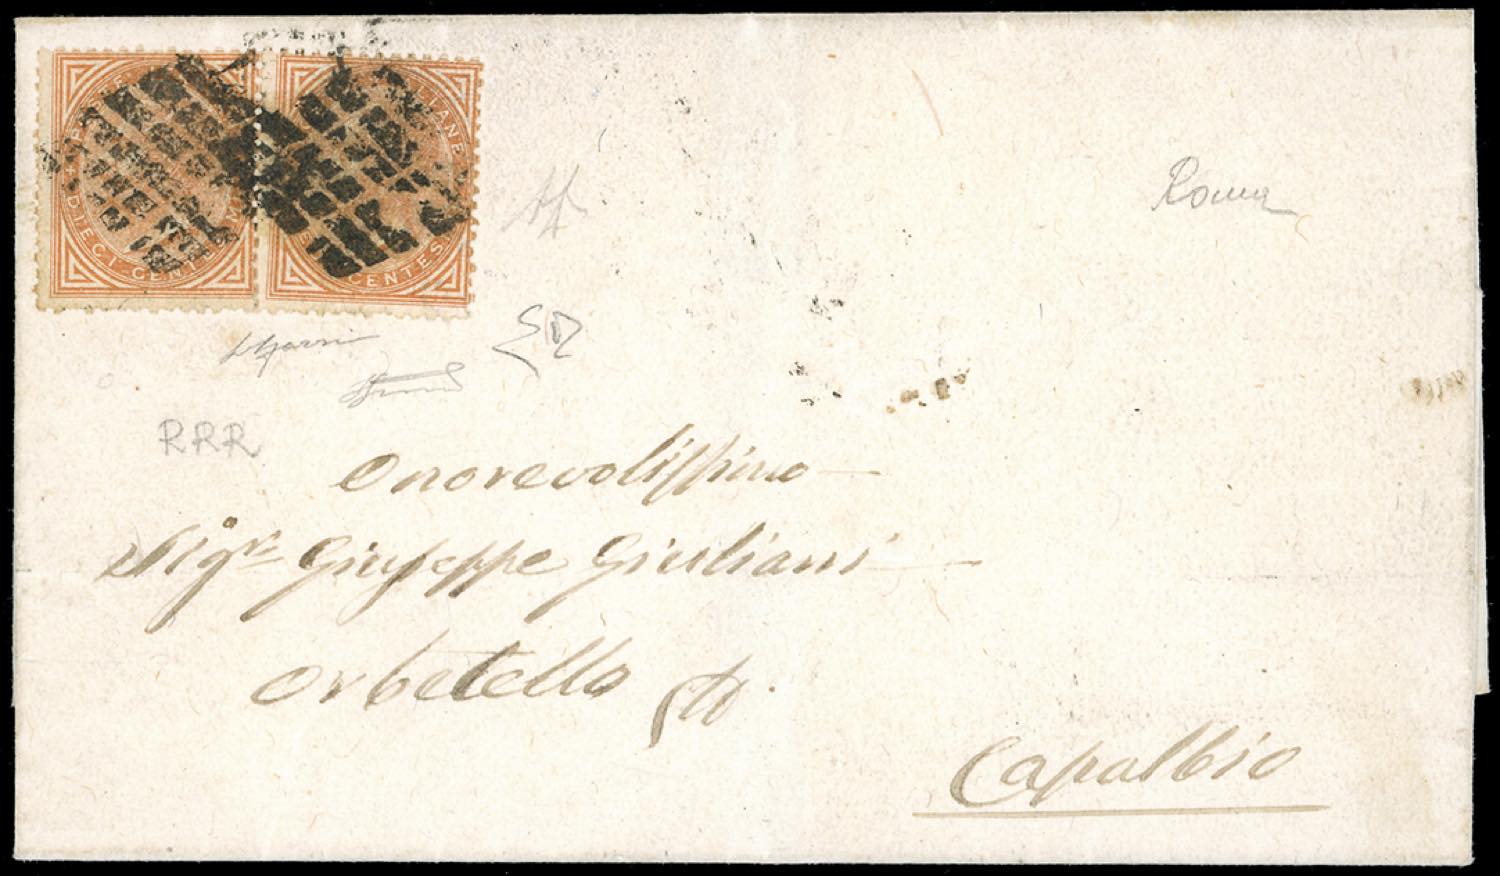 DIECI CENT
CENTES
Roma
RRR
Onorevolissimo
Sig.r Giuseppe Giuliani
Orbetello
Capalbio